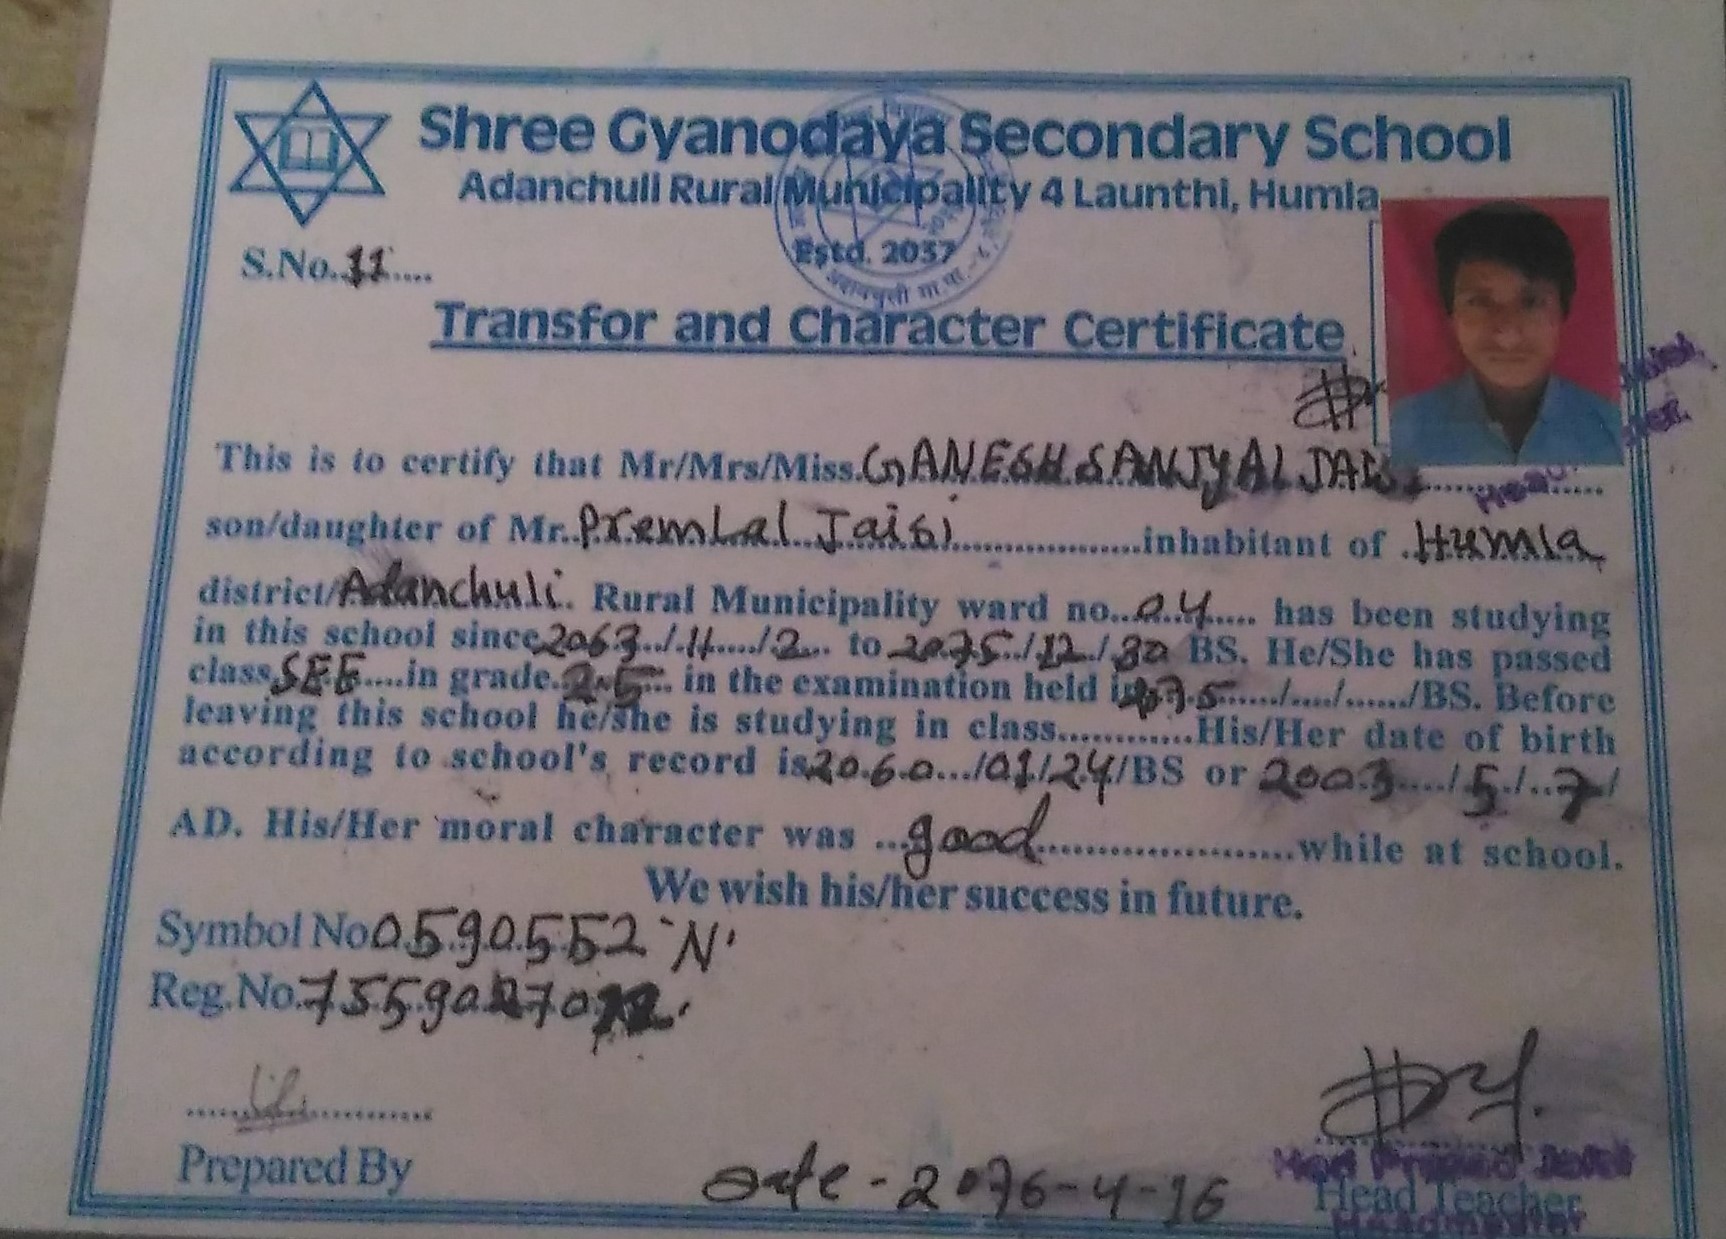 Shree Gyanodaya Secondary School
Adanchuli Rural Municipality 4 Launthi, Humla
Estd. 2057
S.No. 11
Transfor and Character Certificate
This is to certify that Mr/Mrs/Miss. GANESH SANJYAL JAISI
son/daughter of Mr. PremLal Jaisi inhabitant of Humla
district/Adanchuli. Rural Municipality ward no. 04 has been studying
in this school since 2063/11/2 to 2075/12/30 BS. He/She has passed
class SEE in grade 2.5 in the examination held in 075/..../....../BS. Before
leaving this school he/she is studying in class............His/Her date of birth
according to school's record is 2060/01/24/BS or 2003/5/7/
AD. His/Her moral character was good while at school.
We wish his/her success in future.
Symbol No 0590552 'N'
Reg.No. 75590270
Prepared By
Date - 2076-4-16
Head Teacher
Headmaster